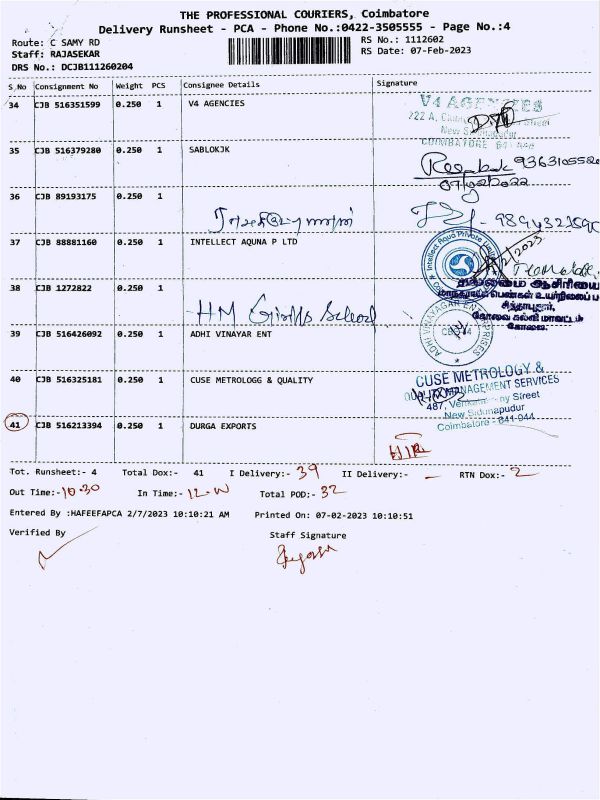 THE PROFESSIONAL COURIERS, Coimbatore
Delivery Runsheet - PCA - Phone No.:0422-3505555 - Page No.:4
Route: C SAMY RD
Staff: RAJASEKAR
DRS No.: DCJB111260204
RS No.: 1112602
RS Date: 07-Feb-2023
S.No Consignment No Weight PCS Consignee Details Signature
34 CJB 516351599 0.250 1 V4 AGENCIES
V4 AGENCIES
COIMBATORE
35 CJB 516379280 0.250 1 SABLOKJK
36 CJB 89193175 0.250 1
37 CJB 88881160 0.250 1 INTELLECT AQUNA P LTD
38 CJB 1272822 0.250 1
HM Girls School
தலைமை ஆசிரியை
கோவை கல்வி மாவட்டம்
கோவை.
39 CJB 516426092 0.250 1 ADHI VINAYAR ENT
ADHI VINAYAGAR ENTERPRISES
40 CJB 516325181 0.250 1 CUSE METROLOGG & QUALITY
CUSE METROLOGY &
QUALITY MANAGEMENT SERVICES
Street
New Sidhapudur
Coimbatore - 641-044
41 CJB 516213394 0.250 1 DURGA EXPORTS
Tot. Runsheet:- 4 Total Dox:- 41 I Delivery:- 39 II Delivery:- - RTN Dox:- 2
Out Time:- 10.30 In Time:- Total POD:- 32
Entered By :HAFEEFAPCA 2/7/2023 10:10:21 AM Printed On: 07-02-2023 10:10:51
Verified By Staff Signature